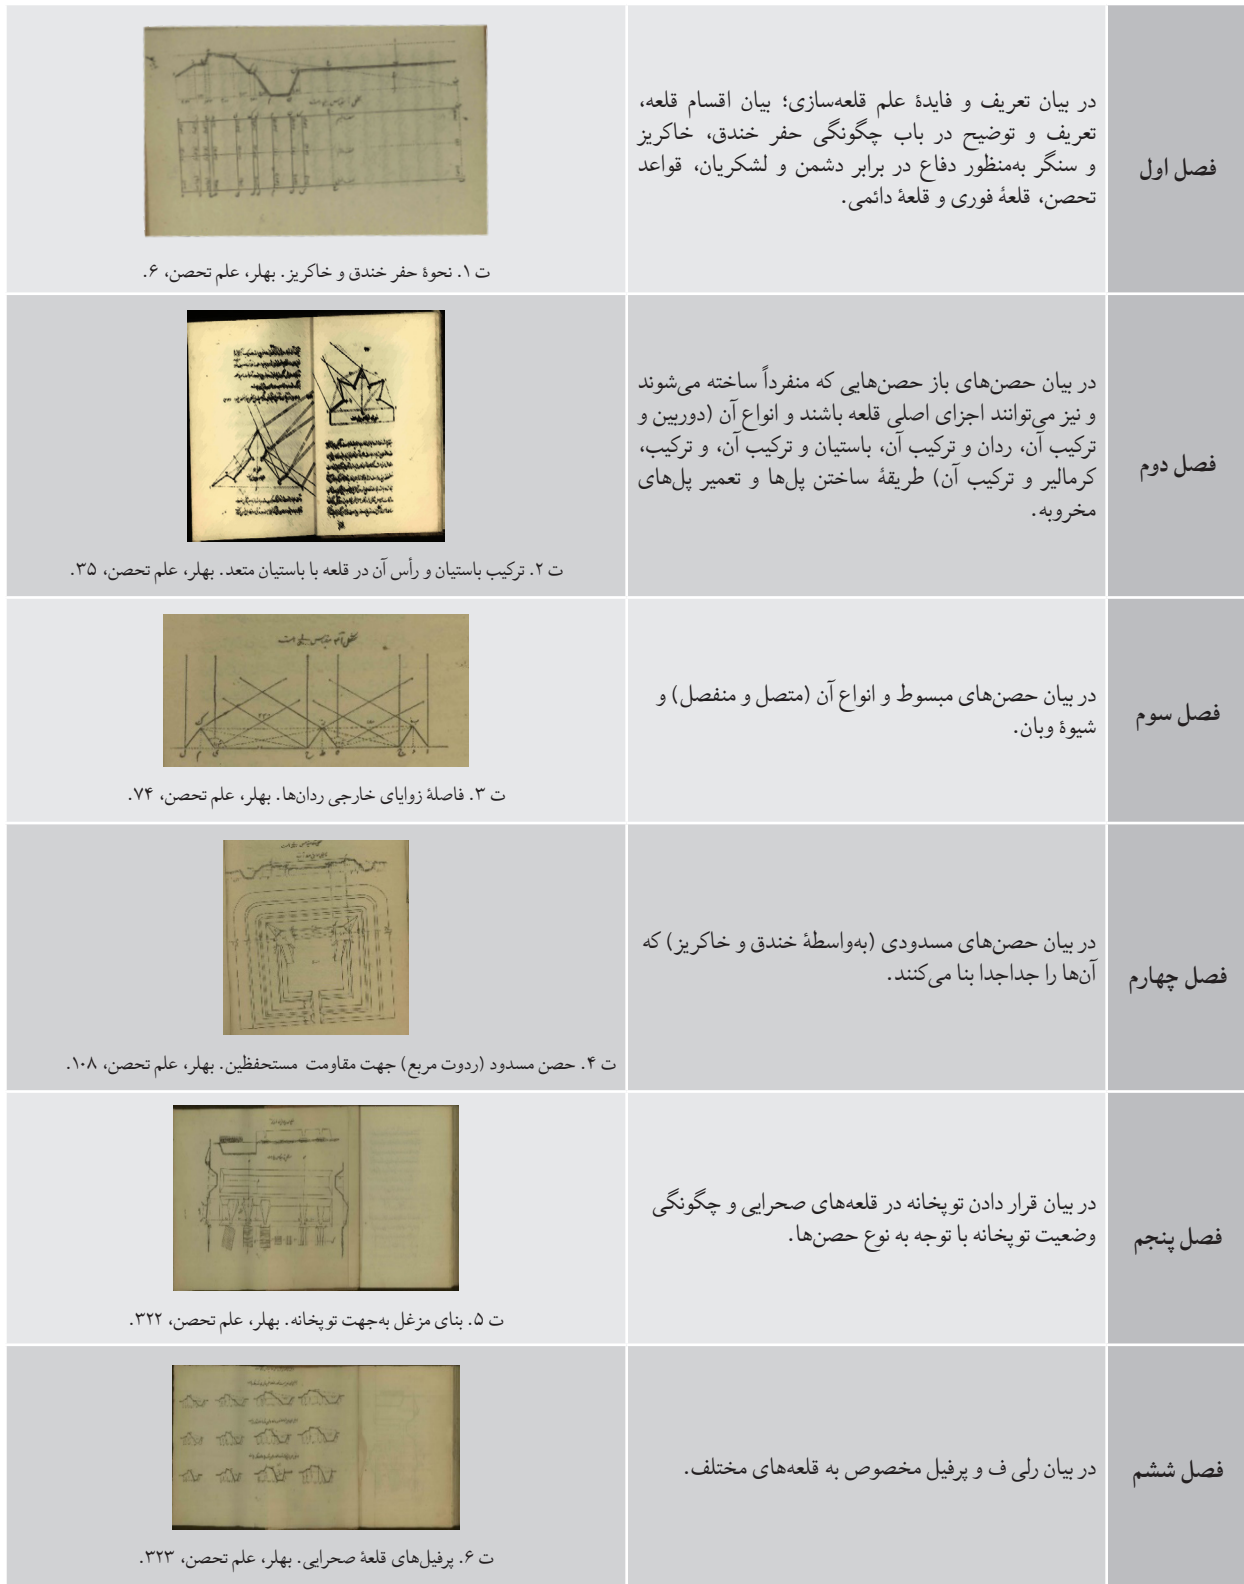 فصل اول
در بیان تعریف و فایدۀ علم قلعه‌سازی؛ بیان اقسام قلعه،
تعریف و توضیح در باب چگونگی حفر خندق، خاکریز
و سنگر به‌منظور دفاع در برابر دشمن و لشکریان، قواعد
تحصن، قلعۀ فوری و قلعۀ دائمی.
ت ۱. نحوۀ حفر خندق و خاکریز. بهلر، علم تحصن، ۶.
فصل دوم
در بیان حصن‌های باز حصن‌هایی که منفرداً ساخته می‌شوند
و نیز می‌توانند اجزای اصلی قلعه باشند و انواع آن (دوربین و
ترکیب آن، ردان و ترکیب آن، باستیان و ترکیب آن، و ترکیب،
کرمالیر و ترکیب آن) طریقۀ ساختن پل‌ها و تعمیر پل‌های
مخروبه.
ت ۲. ترکیب باستیان و رأس آن در قلعه با باستیان متعد. بهلر، علم تحصن، ۳۵.
فصل سوم
در بیان حصن‌های مبسوط و انواع آن (متصل و منفصل) و
شیوۀ وبان.
ت ۳. فاصلۀ زوایای خارجی ردان‌ها. بهلر، علم تحصن، ۷۴.
فصل چهارم
در بیان حصن‌های مسدودی (به‌واسطۀ خندق و خاکریز) که
آن‌ها را جداجدا بنا می‌کنند.
ت ۴. حصن مسدود (ردوت مربع) جهت مقاومت مستحفظین. بهلر، علم تحصن، ۱۰۸.
فصل پنجم
در بیان قرار دادن توپخانه در قلعه‌های صحرایی و چگونگی
وضعیت توپخانه با توجه به نوع حصن‌ها.
ت ۵. بنای مزغل به‌جهت توپخانه. بهلر، علم تحصن، ۳۲۲.
فصل ششم
در بیان رلی ف و پرفیل مخصوص به قلعه‌های مختلف.
ت ۶. پرفیل‌های قلعۀ صحرایی. بهلر، علم تحصن، ۳۲۳.